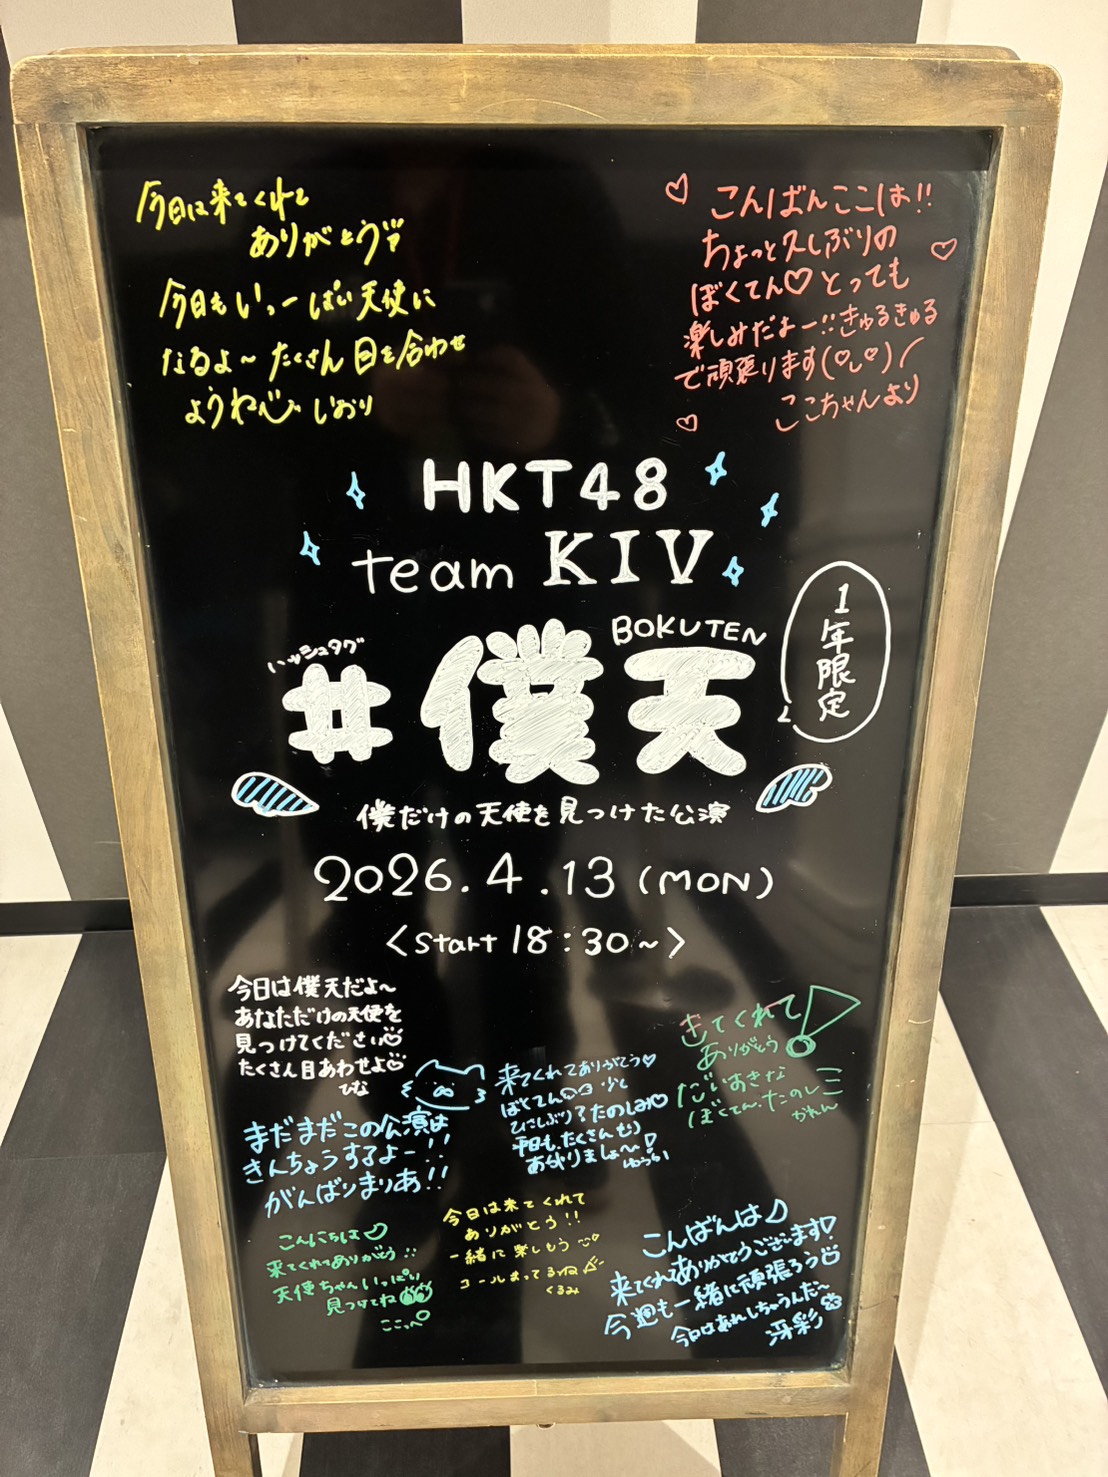 今日は来てくれて
ありがとうヴァ
今日もいっーぱい天使に
なるよ〜たくさん目を合わせ
ようね しおり
こんばんここは!!
ちょっと久しぶりの
ぼくてん♡とっても
楽しみだよー!!きゅるきゅる
で頑張ります(♡◡♡)/
ここちゃんより
HKT48
team KIV
ハッシュタグ
BOKUTEN
#僕天
1年限定
僕だけの天使を見つけた公演
2026.4.13(MON)
<Start 18:30~>
今日は僕天だよ〜
あなただけの天使を
見つけてください
たくさん目あわせよ
ひな
まだまだこの公演は
きんちょうするよー!!
がんばりまりあ!!
来てくれてありがとう♡
ぼくてん 少し
ひさしぶり?たのしみ♡
平日も、たくさん
ましょ〜!
きてくれて
ありがとう!
だいすきな
ぼくてん、たのしミ
かれん
こんにちは
来てくれてありがとう!!
天使ちゃんいっぱい
見つけてね
ここっぺ
今日は来てくれて
ありがとう!!
一緒に楽しもう
コールまってるね
くるみ
こんばんは
来てくれてありがとうございます♡
今週も一緒に頑張ろう
今日はあれしちゃうんだ〜
冴彩